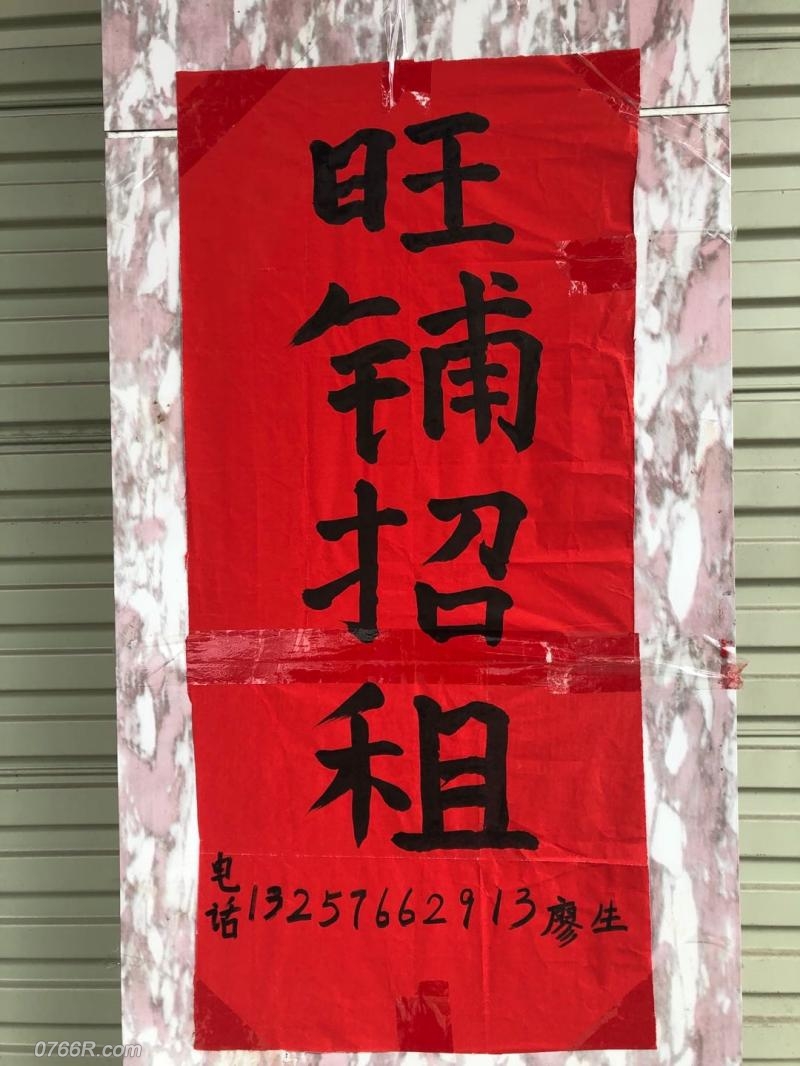 旺铺招租
电话13257662913廖生
0766R.com